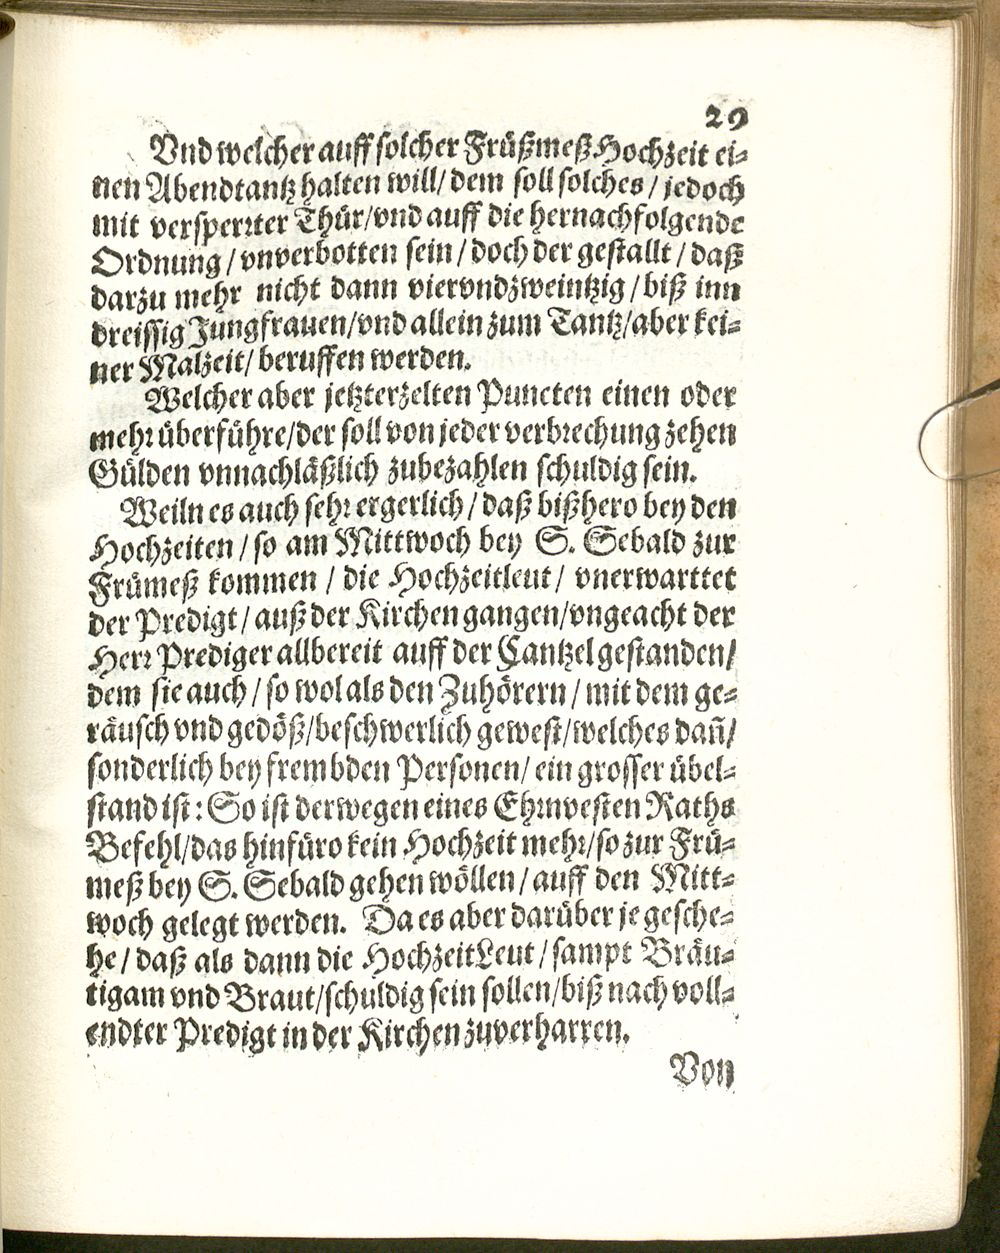 29
Vnd welcher auff solcher Früßmeß Hochzeit ei⸗
nen Abendtantz halten will/ dem soll solches / jedoch
mit versperrter Thür/vnd auff die hernachfolgende
Ordnung / vnverbotten sein / doch der gestallt / daß
darzu mehr nicht dann viervndzweintzig / biß inn
dreissig Jungfrauen/vnd allein zum Tantz/aber kei⸗
ner Malzeit/ beruffen werden.
Welcher aber jetzterzelten Puncten einen oder
mehr überführe/der soll von jeder verbrechung zehen
Gülden vnnachläßlich zubezahlen schuldig sein.
Weiln es auch sehr ergerlich / daß bißhero bey den
Hochzeiten / so am Mittwoch bey S. Sebald zur
Frümeß kommen / die Hochzeitleut / vnerwarttet
der Predigt / auß der Kirchen gangen/vngeacht der
Herr Prediger allbereit auff der Cantzel gestanden/
dem sie auch / so wol als den Zuhörern / mit dem ge⸗
räusch vnd gedöß/beschwerlich gewest/welches dañ/
sonderlich bey frembden Personen/ ein grosser übel⸗
stand ist: So ist derwegen eines Ehrnvesten Raths
Befehl/das hinfüro kein Hochzeit mehr/so zur Frü⸗
meß bey S. Sebald gehen wöllen / auff den Mitt⸗
woch gelegt werden. Da es aber darüber je gesche⸗
he / daß als dann die HochzeitLeut / sampt Bräu⸗
tigam vnd Braut/schuldig sein sollen/biß nach voll⸗
endter Predigt in der Kirchen zuverharren.
Von